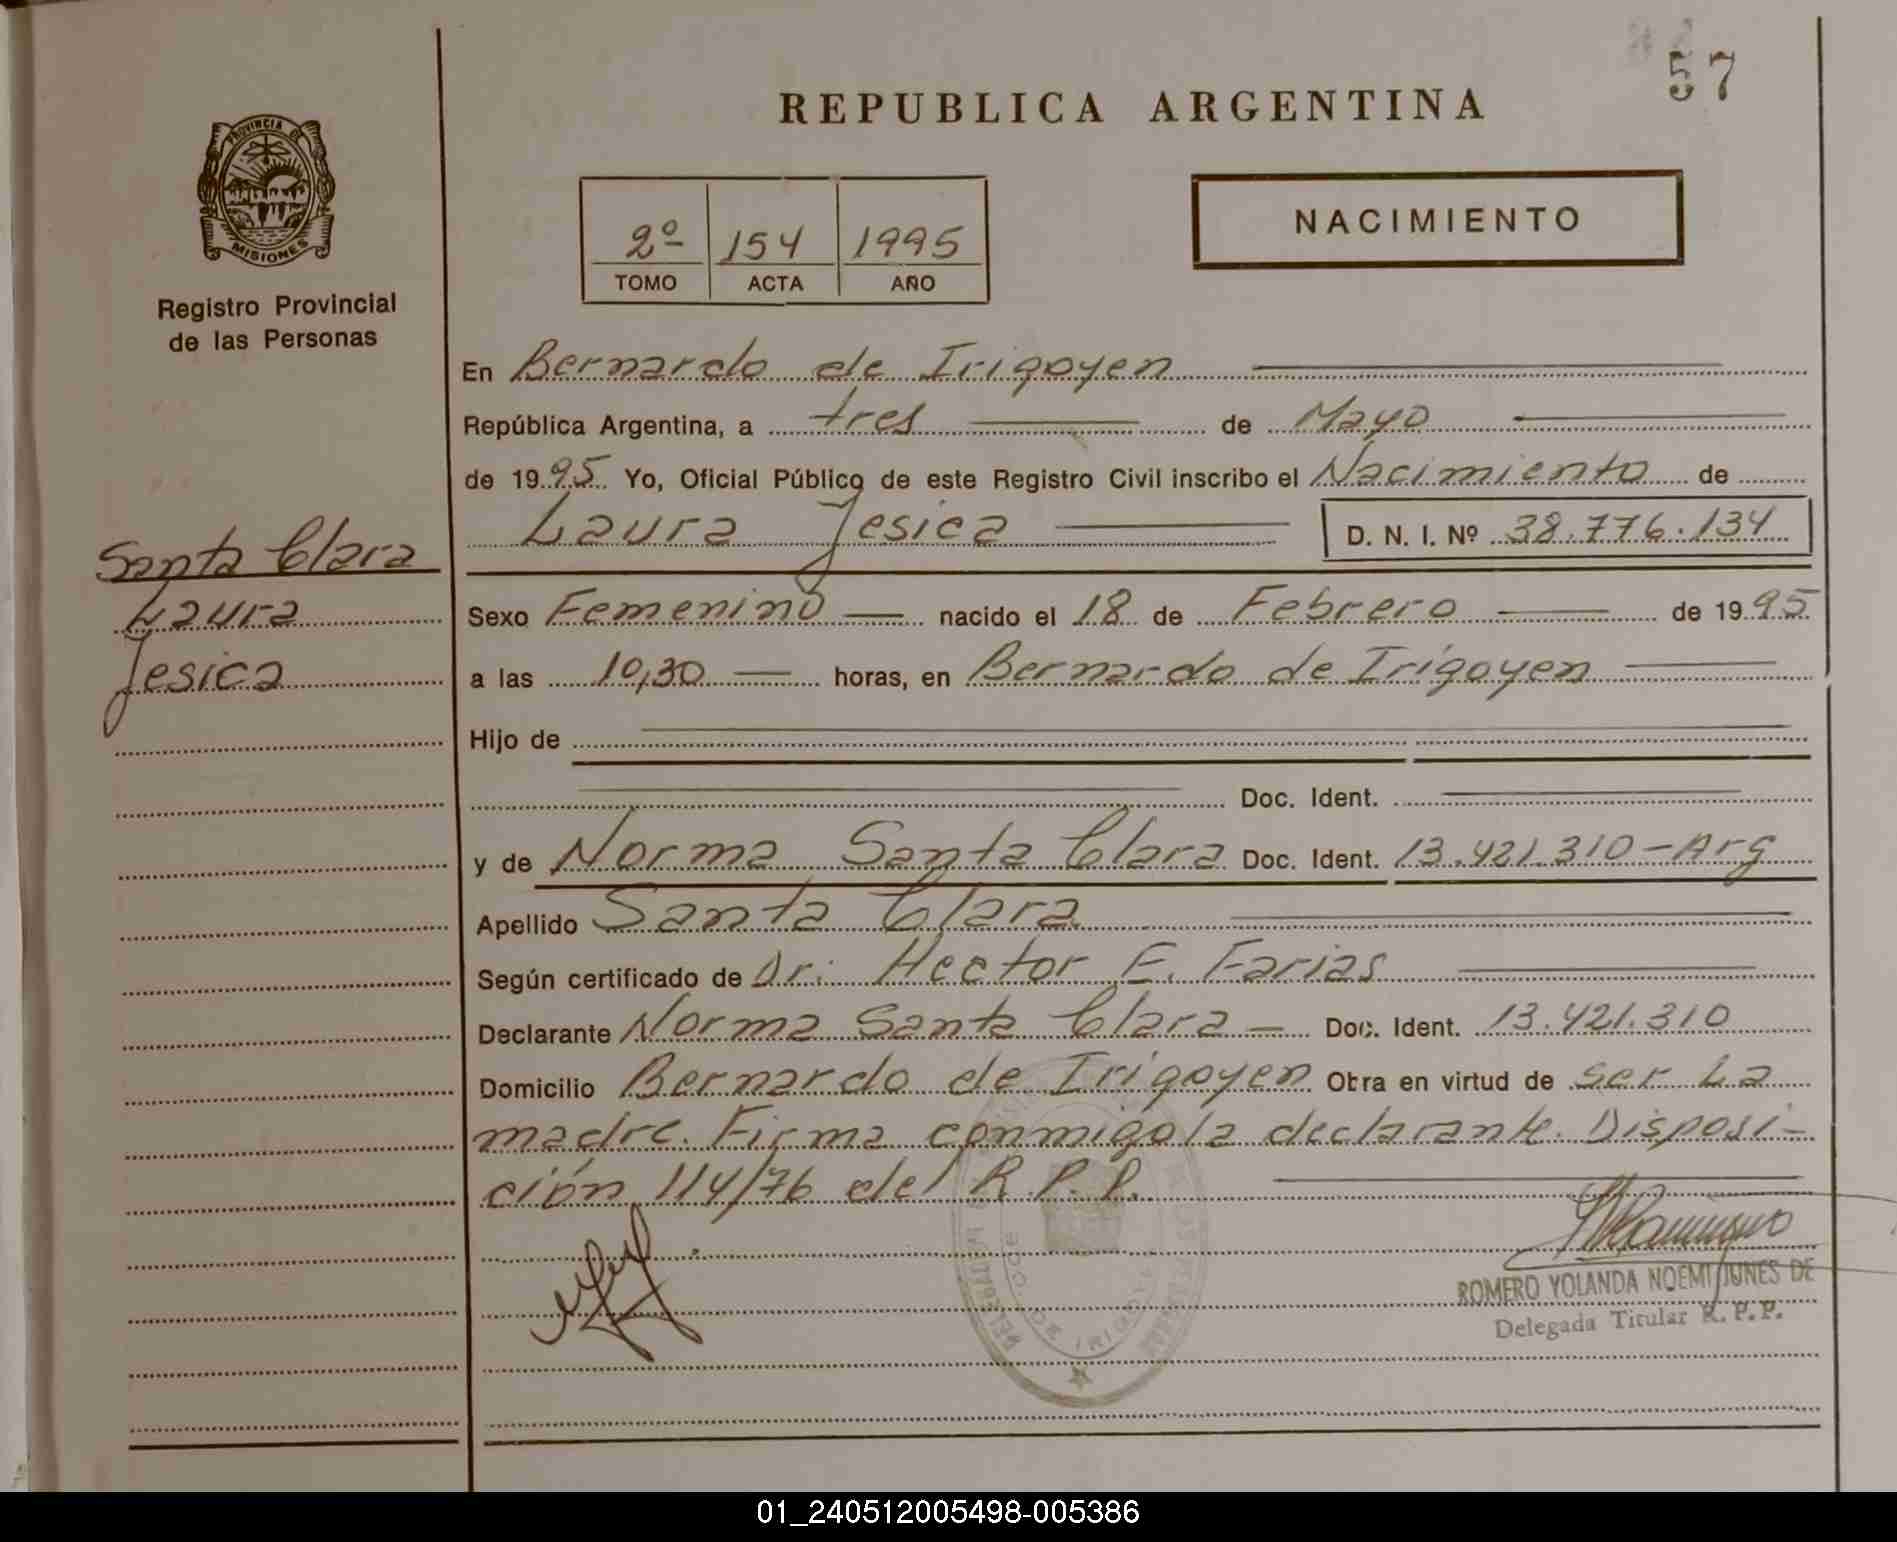 57
REPUBLICA ARGENTINA
PROVINCIA DE
MISIONES
Registro Provincial
de las Personas
2º 154 1995
TOMO ACTA AÑO
NACIMIENTO
En Bernardo de Irigoyen
República Argentina, a tres de Mayo
de 1995 Yo, Oficial Público de este Registro Civil inscribo el Nacimiento de
Laura Jesica D. N. I. Nº 38.776.134
Santa Clara
Laura
Jesica
Sexo Femenino nacido el 18 de Febrero de 1995
a las 10,30 horas, en Bernardo de Irigoyen
Hijo de
Doc. Ident.
y de Norma Santa Clara Doc. Ident. 13.421.310-Arg
Apellido Santa Clara
Según certificado de Dr. Hector E. Farias
Declarante Norma Santa Clara Doc. Ident. 13.421.310
Domicilio Bernardo de Irigoyen Obra en virtud de ser La
madre. Firma conmigo la declarante. Disposi-
ción 114/76 del R.P.P.
ROMERO YOLANDA NOEMI JUNES DE
Delegada Titular R. P. P.
01_240512005498-005386